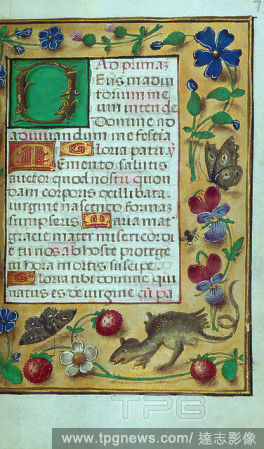 7
Ad primaz
Eus in adiu
torium me
um inten de
Domine ao
adiuvandum me festia
Gloria patri y
Memento salutis
auctor quod nostri quon
dam corporis ex illibata
virgine nascendo formaz
sumpseris Maria mat
graciae mater misericor
e tu nos ab hoste protege
hora mortis suscipe
Gloria tibi domine qui
natus es de virgine cu pa
TPG
www.tpgnews.com / 達志影像